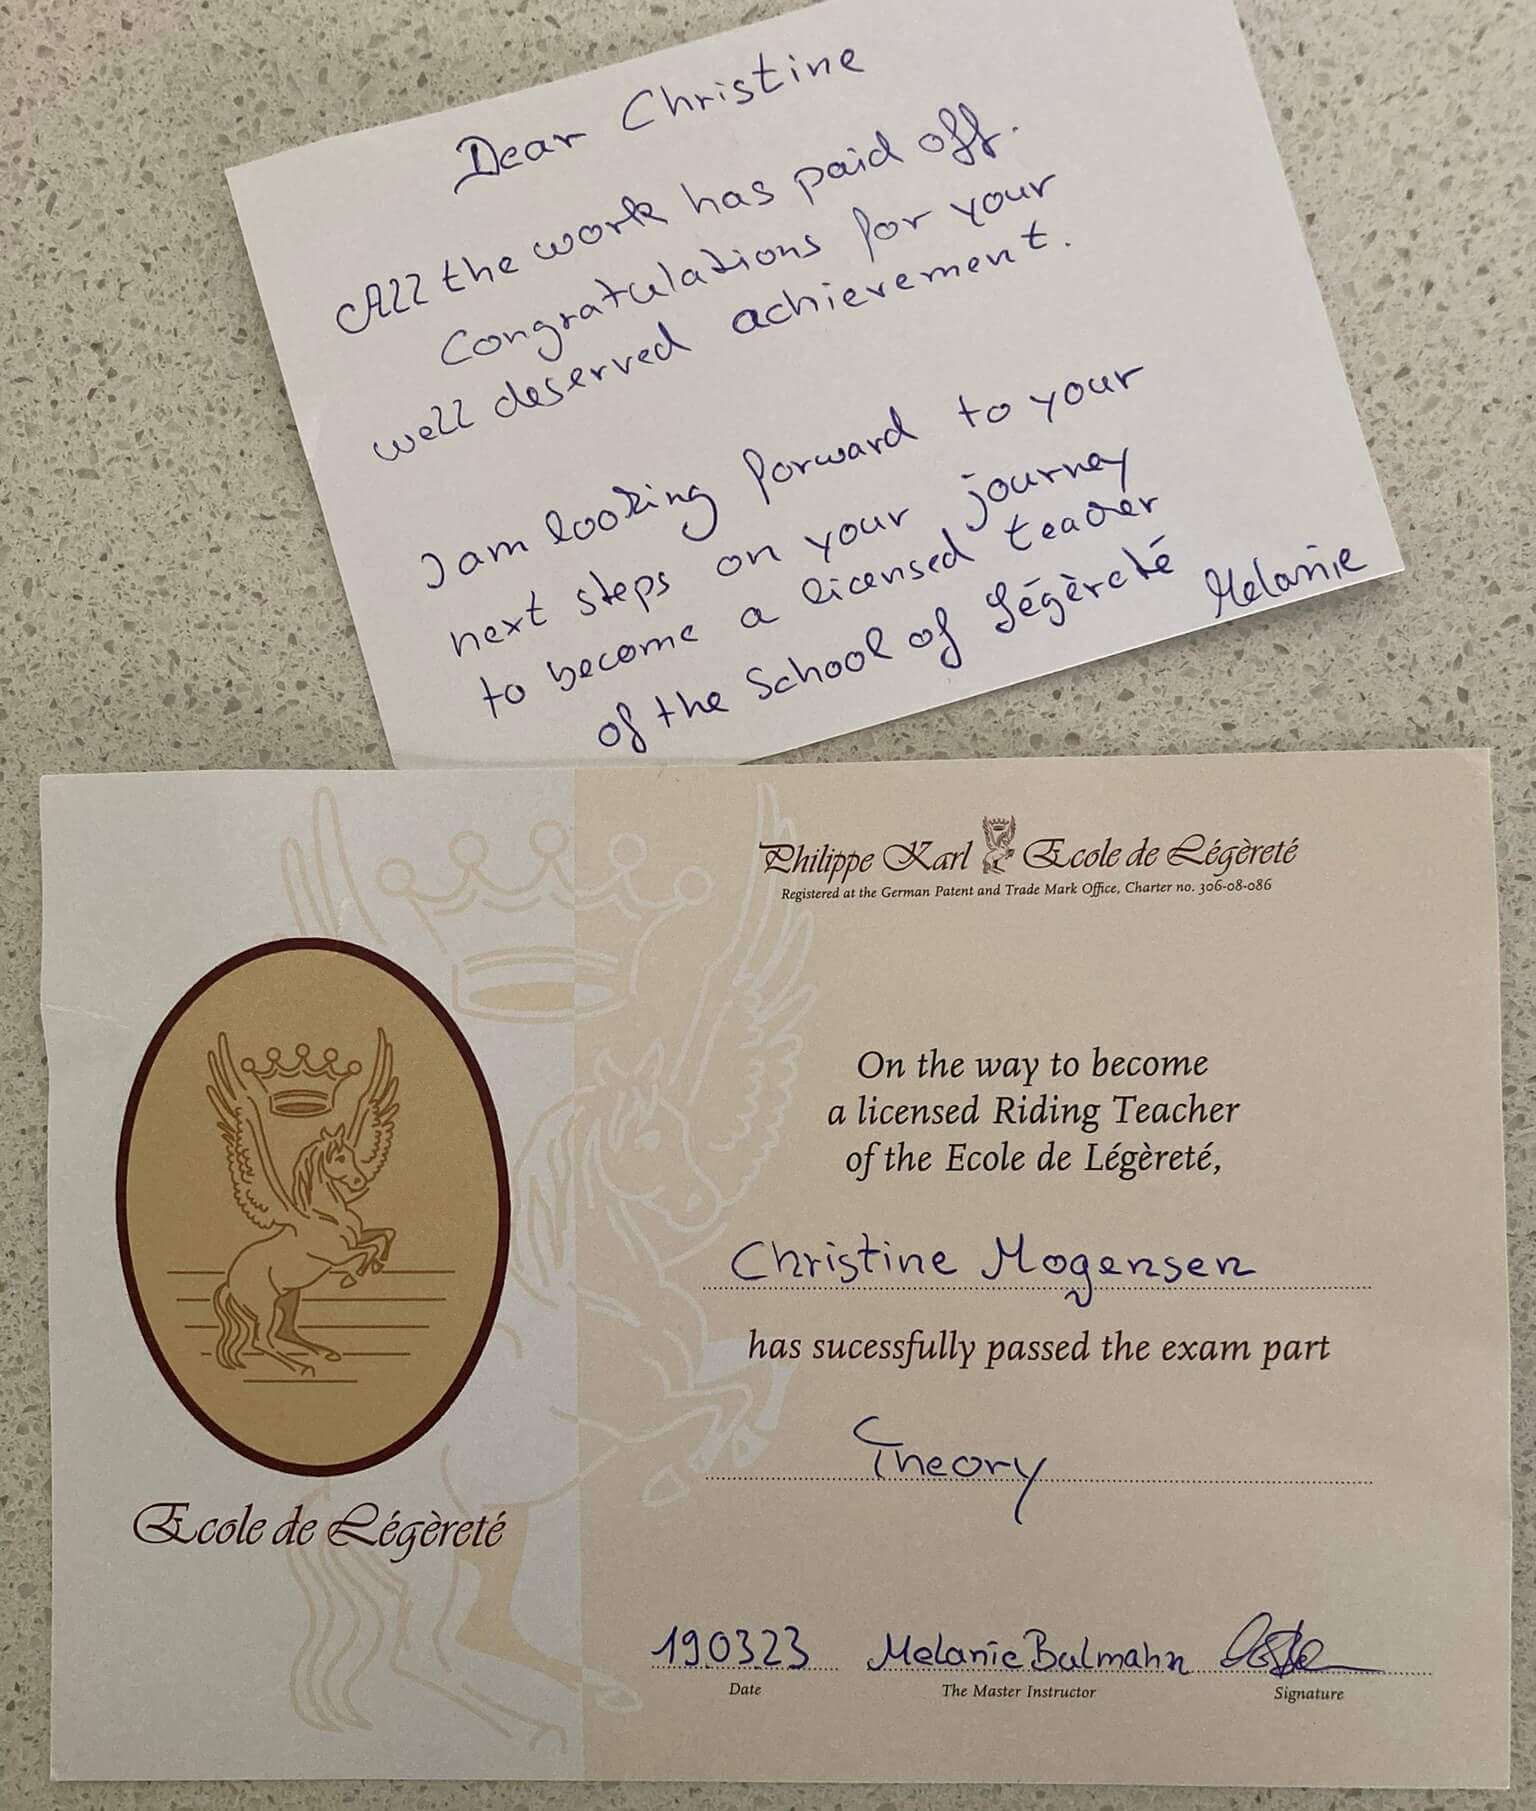 Dear Christine
All the work has paid off.
Congratulations for your
well deserved achievement.
I am looking forward to your
next steps on your journey
to become a licensed teacher
of the School of Légèreté
Melanie
Philippe Karl Ecole de Légèreté
Registered at the German Patent and Trade Mark Office, Charter no. 306-08-086
On the way to become
a licensed Riding Teacher
of the Ecole de Légèreté,
Christine Mogensen
has sucessfully passed the exam part
Theory
Ecole de Légèreté
190323 Melanie Bulmahn
Date The Master Instructor Signature